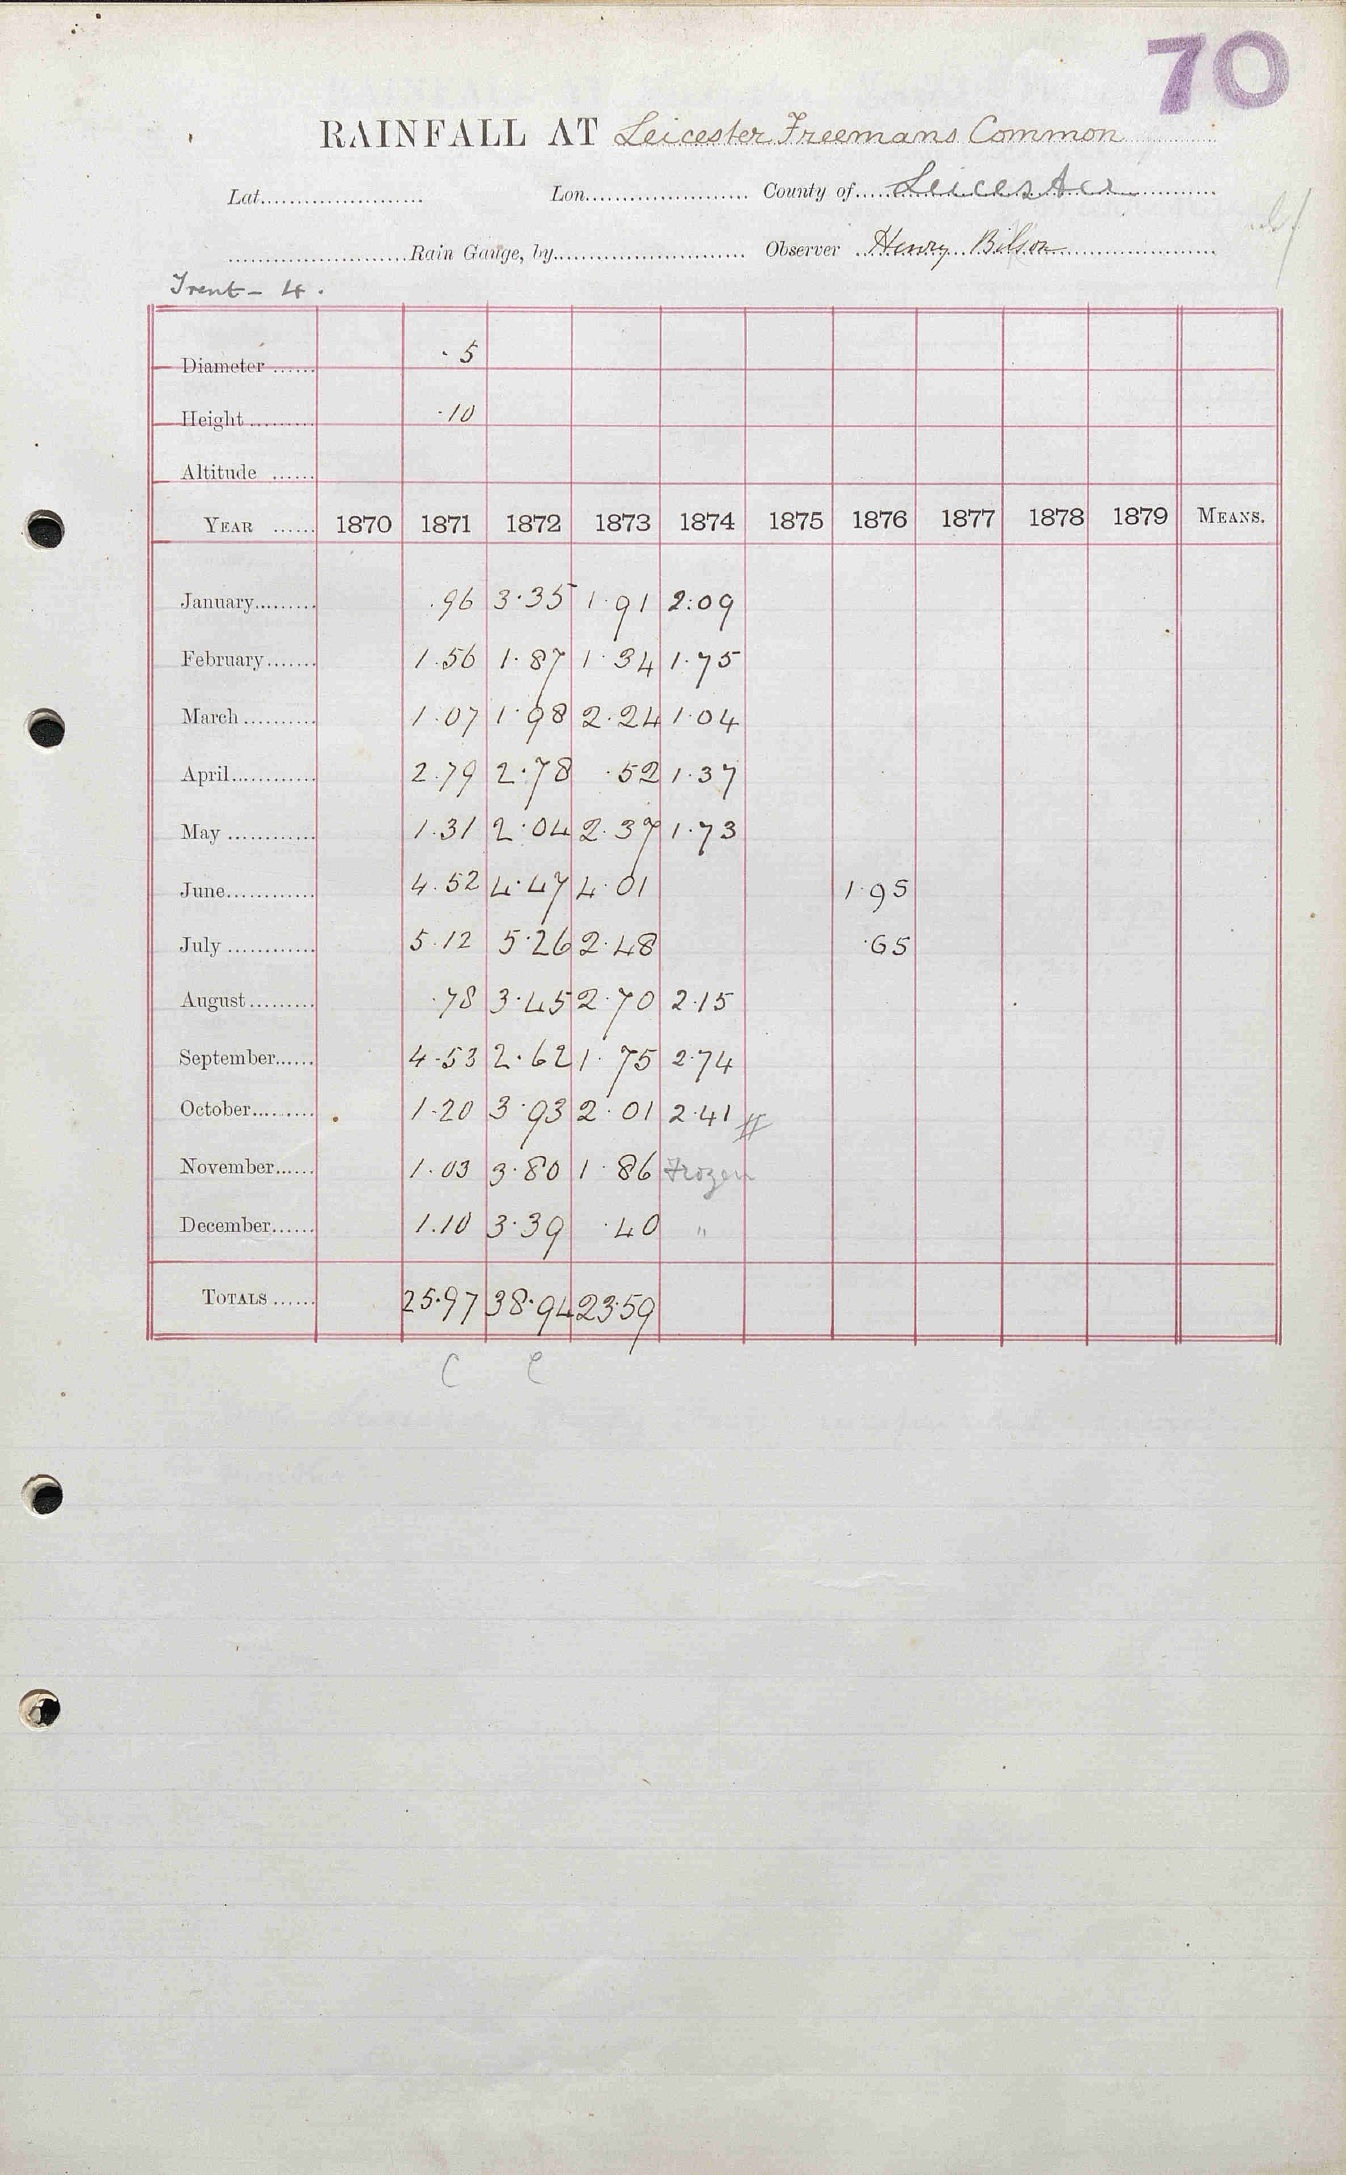 70
RAINFALL AT Leicester Freemans Common
Lat...................... Lon...................... County of....Leicester
........................Rain Gauge, by........................ Observer Henry Bilson
Trent - 4.
Diameter ...... .5
Height ......... .10
Altitude ......
YEAR ...... 1870 1871 1872 1873 1874 1875 1876 1877 1878 1879 MEANS.
January......... .96 3.35 1.91 2.09
February....... 1.56 1.87 1.34 1.75
March .......... 1.07 1.98 2.24 1.04
April............ 2.79 2.78 .52 1.37
May ............ 1.31 2.04 2.37 1.73
June............ 4.52 4.47 4.01 1.95
July ............ 5.12 5.26 2.48 .65
August......... .78 3.45 2.70 2.15
September...... 4.53 2.62 1.75 2.74
October......... 1.20 3.93 2.01 2.41
November...... 1.03 3.80 1.86 Frozen
December...... 1.10 3.39 .40 "
TOTALS ...... 25.97 38.94 23.59
C C